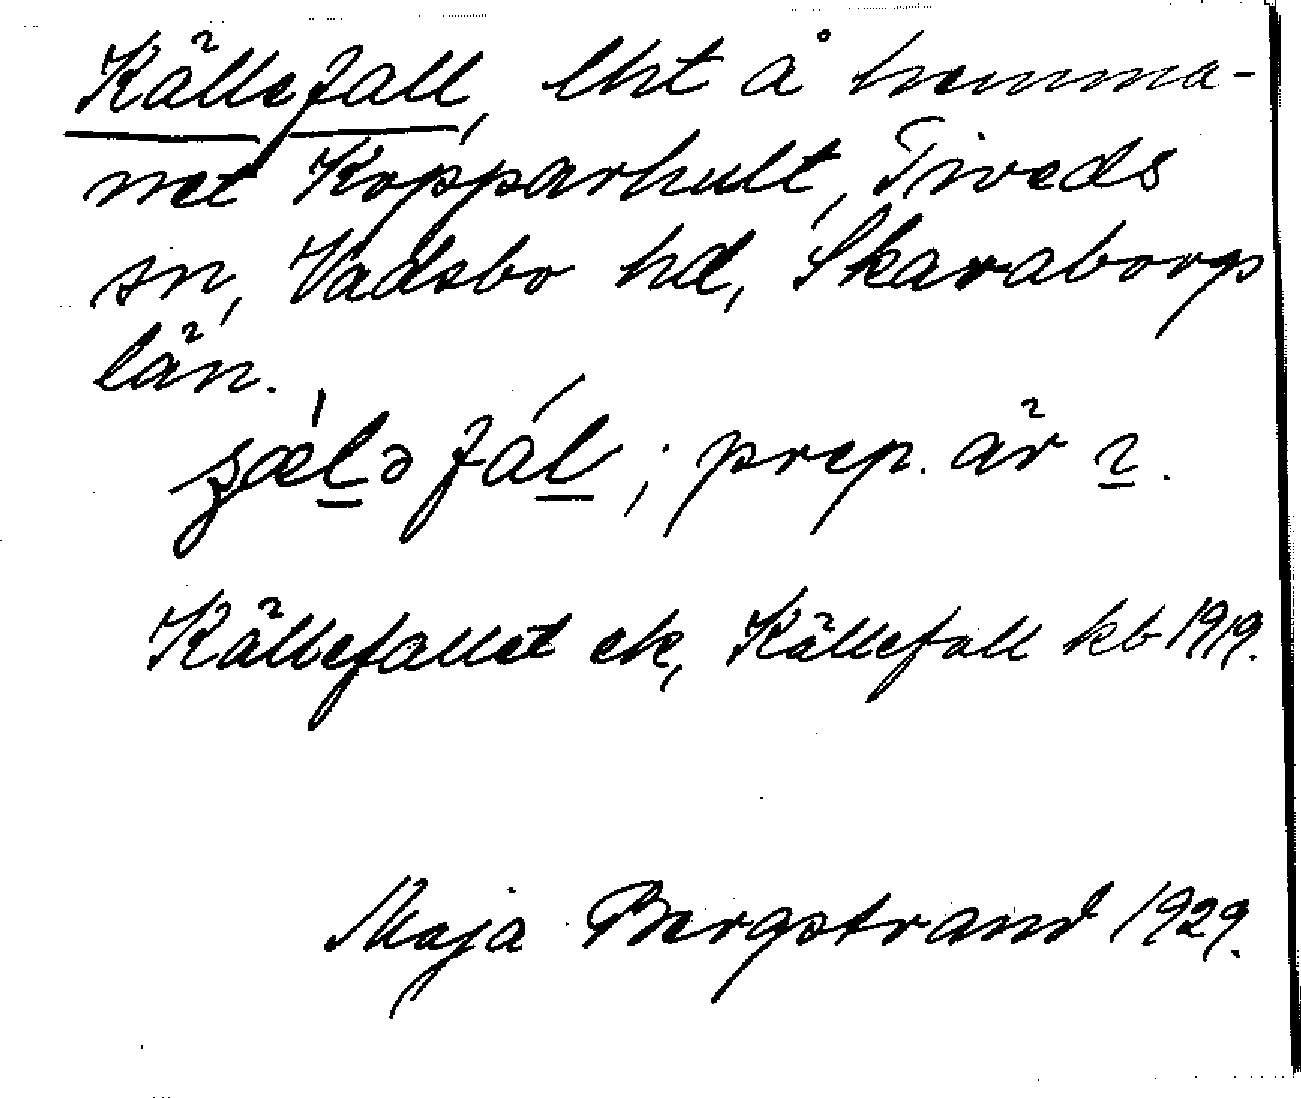 Källefall, lht å hemma-
net Kopparhult, Tiveds
sn, Vadsbo hd, Skaraborgs
län.
; prep. är ı.
Källefallet ek, Källefall kb 1919.
Maja Bergstrand 1929.